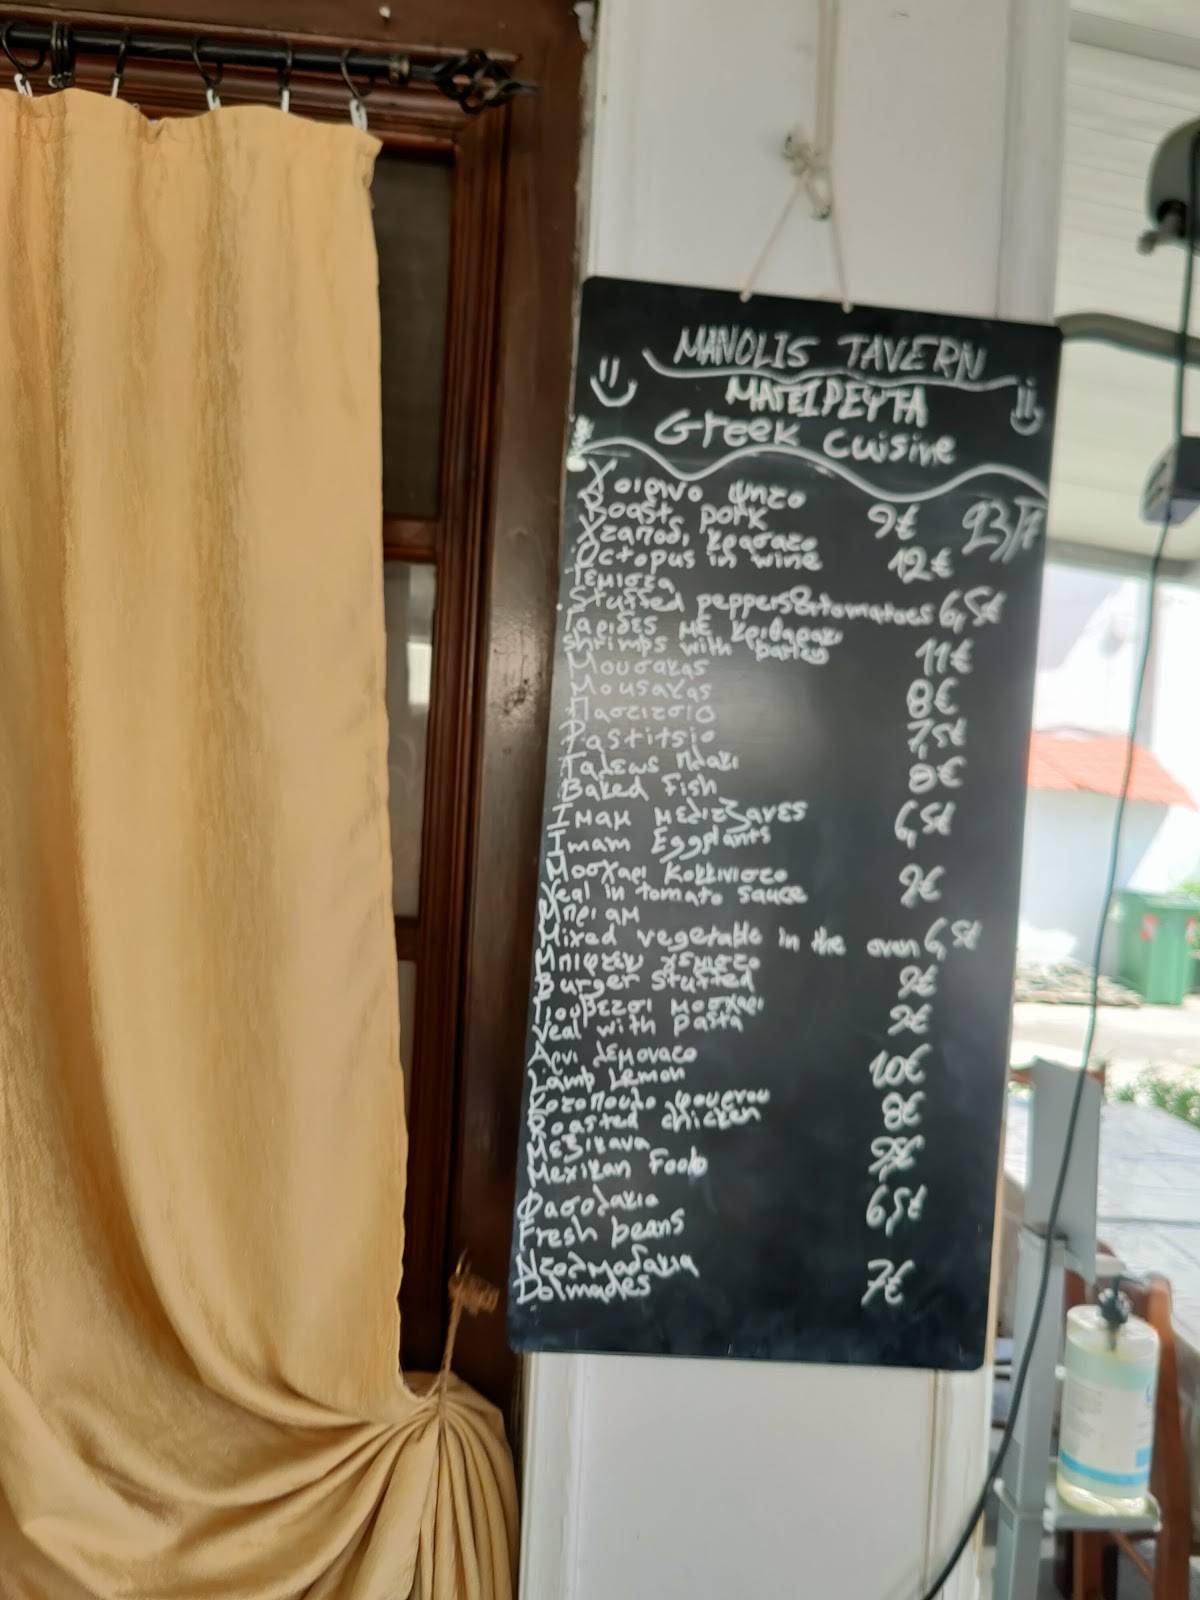 MANOLIS TAVERN
ΜΑΓΕΙΡΕΥΤΑ
Greek Cuisine
Χοιρινο ψητο
Roast pork 9€ 23/7
Χταποδι κρασατο
Octopus in wine 12€
Γεμιστα
Stuffed peppers&tomatoes 6,5€
Γαριδες με κριθαρακι
Shrimps with barley 11€
Μουσακας
Mousakas 8€
Παστιτσιο
Pastitsio 7,5€
Γαλεως πλακι
Baked Fish 8€
Ιμαμ μελιτζανες
Imam Eggplants 6,5€
Μοσχαρι κοκκινιστο
Veal in tomato sauce 9€
Μπριαμ
Mixed vegetable in the oven 6,5€
Μπιφτεκι γεμιστο
Burger Stuffed 9€
Γιουβετσι μοσχαρι
Veal with pasta 9€
Αρνι λεμονατο
Lamb Lemon 10€
Κοτοπουλο φουρνου
Roasted chicken 8€
Μεξικανα
Mexikan Food
Φασολακια
Fresh beans 6,5€
Ντολμαδακια
Dolmades 7€